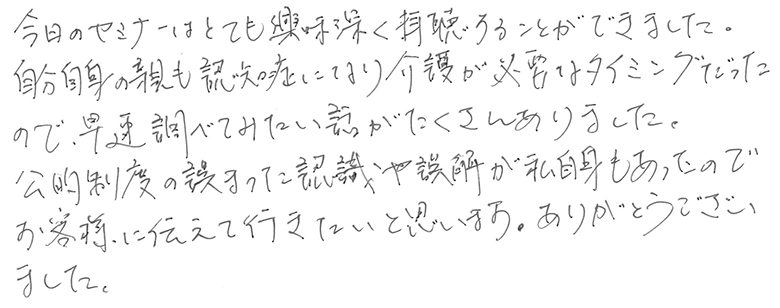 今日のセミナーはとても興味深く拝聴することができました。
自分自身の親も認知症になり介護が必要なタイミングだった
ので、早速調べてみたい話がたくさんありました。
公的制度の誤まった認識や誤解が私自身もあったので
お客様に伝えて行きたいと思います。ありがとうござい
ました。